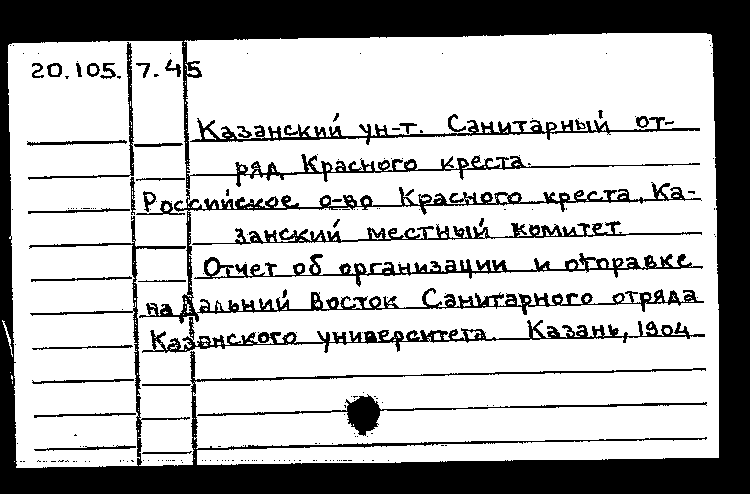 20.105.7.45
Казанский ун-т. Санитарный от-
ряд Красного креста.
Российское о-во Красного креста, Ка-
занский местный комитет.
Отчет об организации и отправке
на Дальний Восток Санитарного отряда
Казанского университета. Казань, 1904